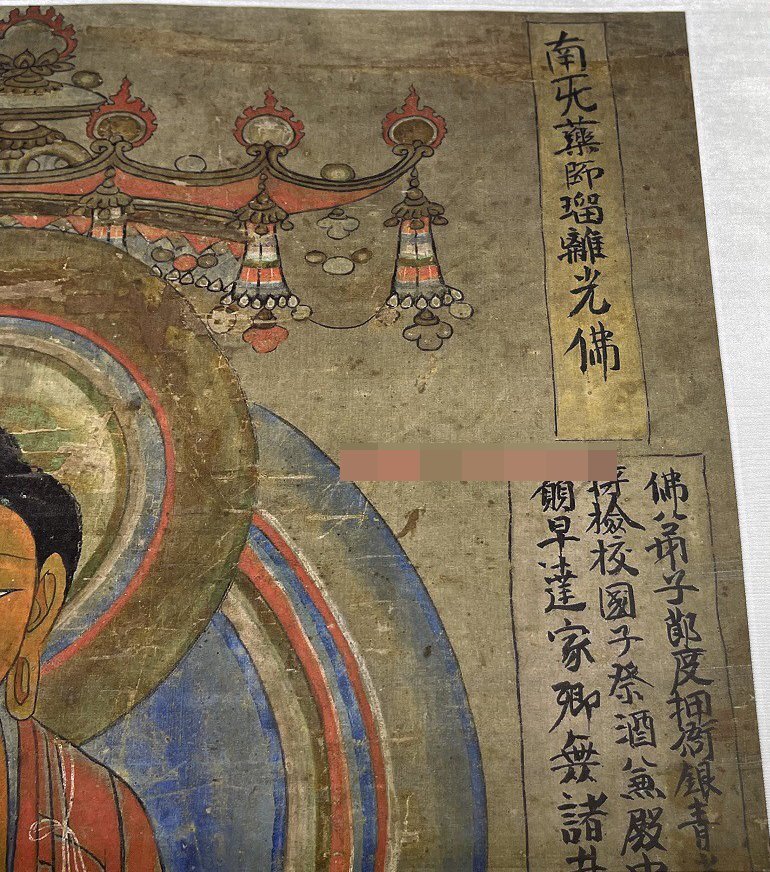 南无藥師瑠離光佛
佛弟子節度押衙銀青
檢校國子祭酒兼殿中
願早達家鄉無諸